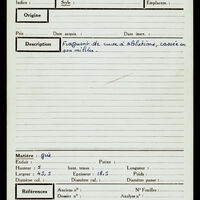 Indice : Style : Emplacem. :
Origine
Prix Date acquis. : Date inv. :
Description Fragment de cuve à ablutions, cassée en
son milieu.
Matière : grès
Enduit : Patine :
Hauteur : haut. trans. : Longueur :
Largeur : Epaisseur :
Diamètre col. : Diamètre panse :
Références Ancien n° : N° Feuilles :
Dossier n° : Analyse n° :